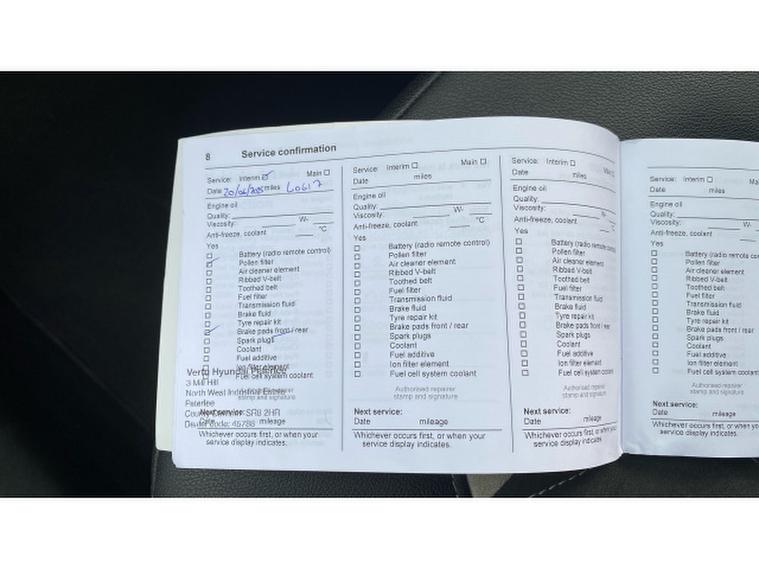 8 Service confirmation
Service: Interim ☑ Main ☐
Date 20/06/2025 miles 60617
Engine oil
Quality:
Viscosity: W-
Anti-freeze, coolant °C
Yes
☐ Battery (radio remote control)
☑ Pollen filter
☐ Air cleaner element
☐ Ribbed V-belt
☐ Toothed belt
☐ Fuel filter
☐ Transmission fluid
☐ Brake fluid
☐ Tyre repair kit
☑ Brake pads front / rear
☐ Spark plugs
☐ Coolant
☐ Fuel additive
☐ Ion filter element
☐ Fuel cell system coolant
Vertu Hyundai Peterlee
3 Mill Hill
North West Industrial Estate
Peterlee
County Durham SR8 2HR
Dealer code: 45788
Authorised repairer
stamp and signature
Next service:
Date mileage
Whichever occurs first, or when your
service display indicates.
Service: Interim ☐ Main ☐
Date miles
Engine oil
Quality:
Viscosity: W-
Anti-freeze, coolant °C
Yes
☐ Battery (radio remote control)
☐ Pollen filter
☐ Air cleaner element
☐ Ribbed V-belt
☐ Toothed belt
☐ Fuel filter
☐ Transmission fluid
☐ Brake fluid
☐ Tyre repair kit
☐ Brake pads front / rear
☐ Spark plugs
☐ Coolant
☐ Fuel additive
☐ Ion filter element
☐ Fuel cell system coolant
Authorised repairer
stamp and signature
Next service:
Date mileage
Whichever occurs first, or when your
service display indicates.
Service: Interim ☐
Date miles
Engine oil
Quality:
Viscosity: W-
Anti-freeze, coolant
Yes
☐ Battery (radio remote control)
☐ Pollen filter
☐ Air cleaner element
☐ Ribbed V-belt
☐ Toothed belt
☐ Fuel filter
☐ Transmission fluid
☐ Brake fluid
☐ Tyre repair kit
☐ Brake pads front / rear
☐ Spark plugs
☐ Coolant
☐ Fuel additive
☐ Ion filter element
☐ Fuel cell system coolant
Authorised repairer
stamp and signature
Next service:
Date mileage
Whichever occurs first, or when your
service display indicates.
Service: Interim ☐
Date miles
Engine oil
Quality:
Viscosity: W-
Anti-freeze, coolant
Yes
☐ Battery (radio remote
☐ Pollen filter
☐ Air cleaner element
☐ Ribbed V-belt
☐ Toothed belt
☐ Fuel filter
☐ Transmission fluid
☐ Brake fluid
☐ Tyre repair kit
☐ Brake pads front / rear
☐ Spark plugs
☐ Coolant
☐ Fuel additive
☐ Ion filter element
☐ Fuel cell system coolant
Authorised repairer
stamp and signature
Next service:
Date mileage
Whichever occurs first, or when your
service display indicates.